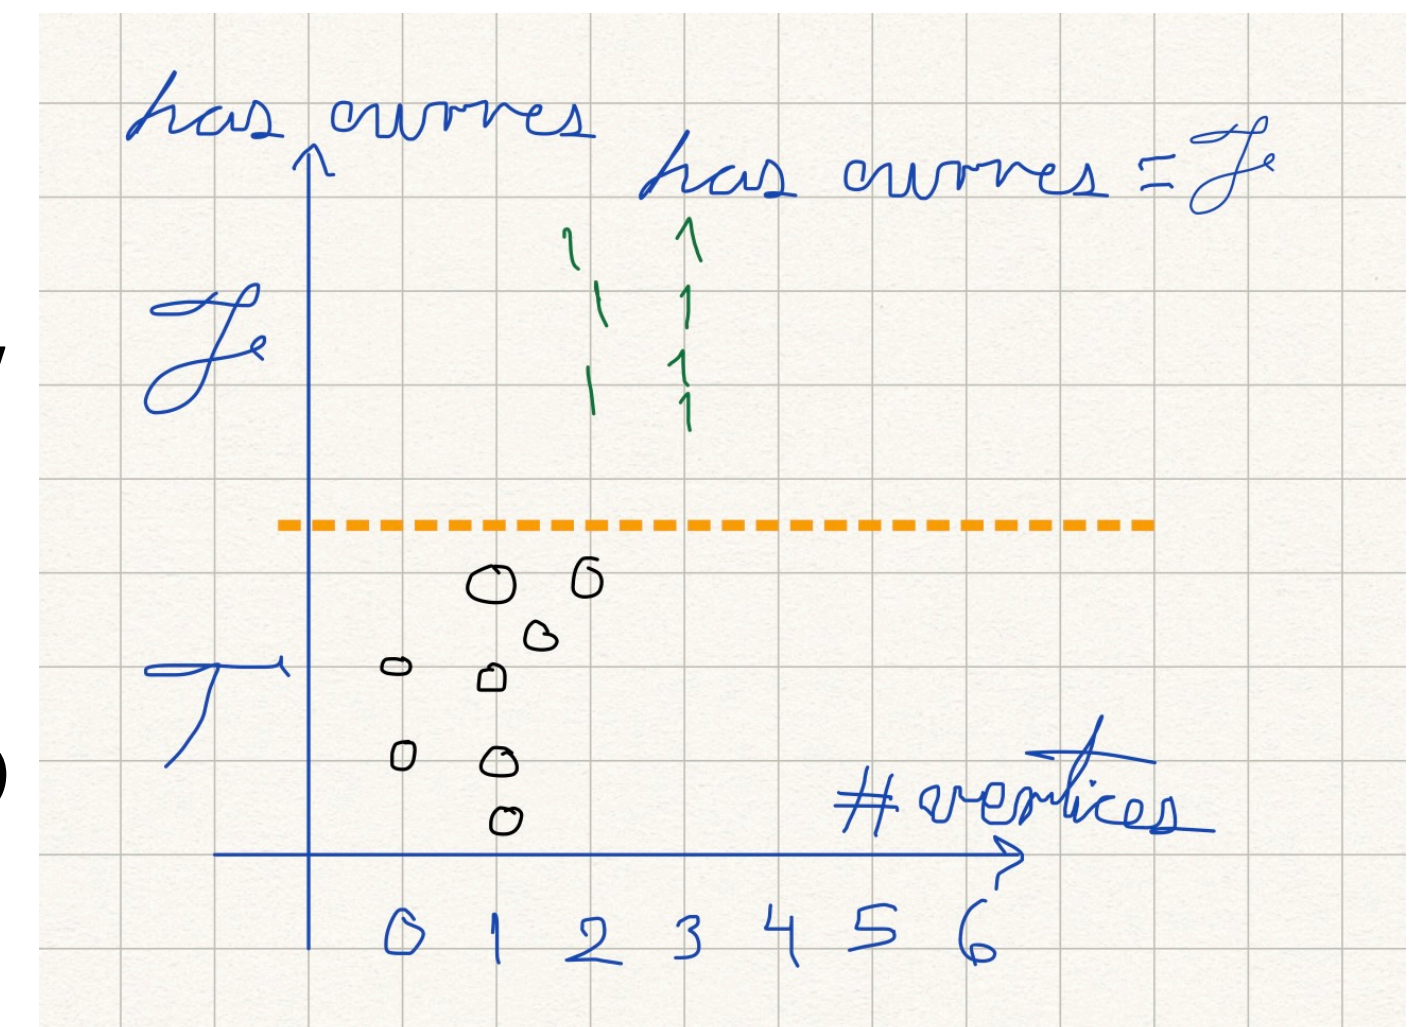 has curves
has curves = F
1 1
F
1 1
1 1
1
0 0
0
0 0
T
0 0
# vertices
0
0 1 2 3 4 5 6